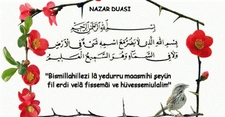 NAZAR DUASI
بسم الله الرحمن الرحيم
بِسْمِ اللهِ الَّذِي لَا يَضُرُّ مَعَ اسْمِهِ شَيْءٌ فِي الْأَرْضِ
وَلَا فِي السَّمَاءِ وَهُوَ السَّمِيعُ الْعَلِيمُ
"Bismillahilezi lâ yedurru maasmihi şeyün
fil erdi velâ fissemâi ve hüvessemiulalim"